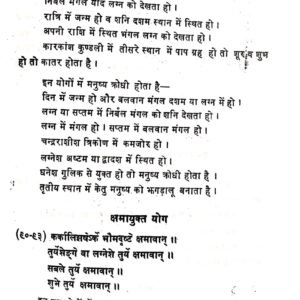 निर्बल मंगल यदि लग्न को देखता हो ।
रात्रि में जन्म हो व शनि दशम स्थान में स्थित हो ।
अपनी राशि में स्थित मंगल लग्न को देखता हो ।
कारकांश कुण्डली में तीसरे स्थान में पाप ग्रह हो तो शूर व शुभ
हो तो कातर होता है ।
इन योगों में मनुष्य क्रोधी होता है—
दिन में जन्म हो और बलवान मंगल दशम या लग्न में हो ।
लग्न या सप्तम में निर्बल मंगल को शनि देखता हो ।
लग्न में मंगल हो । सप्तम में बलवान मंगल हो ।
चन्द्रराशीश त्रिकोण में कमजोर हो ।
लग्नेश अष्टम या द्वादश में स्थित हो ।
धनेश गुलिक से युक्त हो तो मनुष्य क्रोधी होता है ।
तृतीय स्थान में केतु मनुष्य को झगड़ालू बनाता है ।
क्षमायुक्त योग
(९०-९३) भौमदृष्टे क्षमावान् ॥
वा लग्नेशे तुर्ये क्षमावान् ॥
सबले तुर्ये क्षमावान् ॥
शुभे तुर्ये क्षमावान् ॥